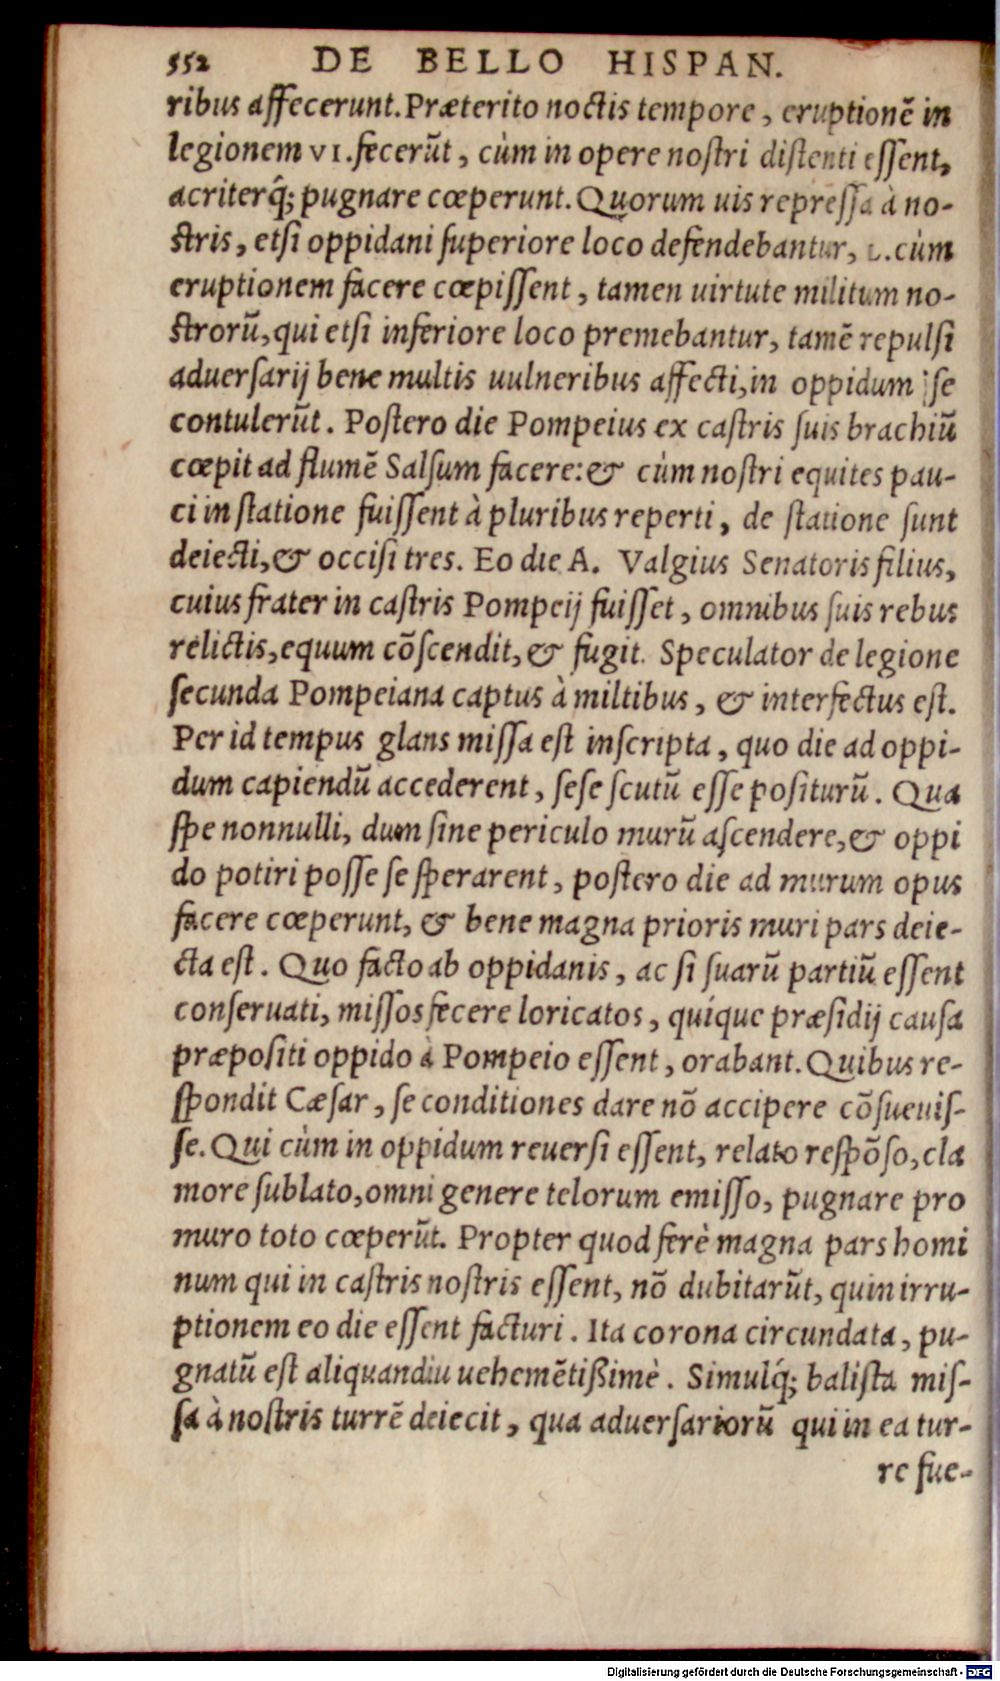 552 DE BELLO HISPAN.
ribus affecerunt. Præterito noctis tempore, eruptionē in
legionem VI. fecerūt, cùm in opere nostri distenti essent,
acriterq́; pugnare cœperunt. Quorum uis repressa à no-
stris, etsi oppidani superiore loco defendebantur, L. cùm
eruptionem facere cœpissent, tamen uirtute militum no-
strorū, qui etsi inferiore loco premebantur, tamē repulsi
aduersarij bene multis uulneribus affecti, in oppidum se
contulerūt. Postero die Pompeius ex castris suis brachiū
cœpit ad flumē Salsum facere: & cùm nostri equites pau-
ci in statione fuissent à pluribus reperti, de statione sunt
deiecti, & occisi tres. Eo die A. Valgius Senatoris filius,
cuius frater in castris Pompeij fuisset, omnibus suis rebus
relictis, equum cōscendit, & fugit. Speculator de legione
secunda Pompeiana captus à miltibus, & interfectus est.
Per id tempus glans missa est inscripta, quo die ad oppi-
dum capiendū accederent, sese scutū esse positurū. Qua
spe nonnulli, dum sine periculo murū ascendere, & oppi
do potiri posse se sperarent, postero die ad murum opus
facere cœperunt, & bene magna prioris muri pars deie-
cta est. Quo facto ab oppidanis, ac si suarū partiū essent
conseruati, missos fecere loricatos, quíque præsidij causa
præpositi oppido à Pompeio essent, orabant. Quibus re-
spondit Cæsar, se conditiones dare nō accipere cōsueuis-
se. Qui cùm in oppidum reuersi essent, relato respōso, cla
more sublato, omni genere telorum emisso, pugnare pro
muro toto cœperūt. Propter quod ferè magna pars homi
num qui in castris nostris essent, nō dubitarūt, quin irru-
ptionem eo die essent facturi. Ita corona circundata, pu-
gnatū est aliquandiu uehemētißimè. Simulq́; balista mis-
sa à nostris turrē deiecit, qua aduersariorū qui in ea tur-
re fue-
Digitalisierung gefördert durch die Deutsche Forschungsgemeinschaft - DFG